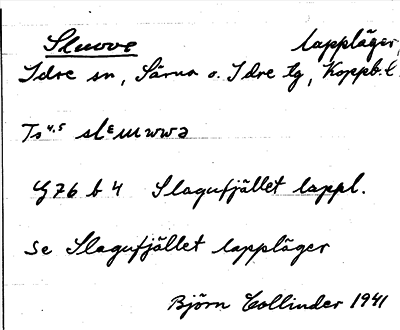 Sluvve lappläger,
Idre sn, Särna o. Idre tg, Koppb. l.
To⁴·⁵ slᵋuwwə
G 76 b 4 Slagufjället lappl.
se Slagufjället lappläger
Björn Collinder 1941